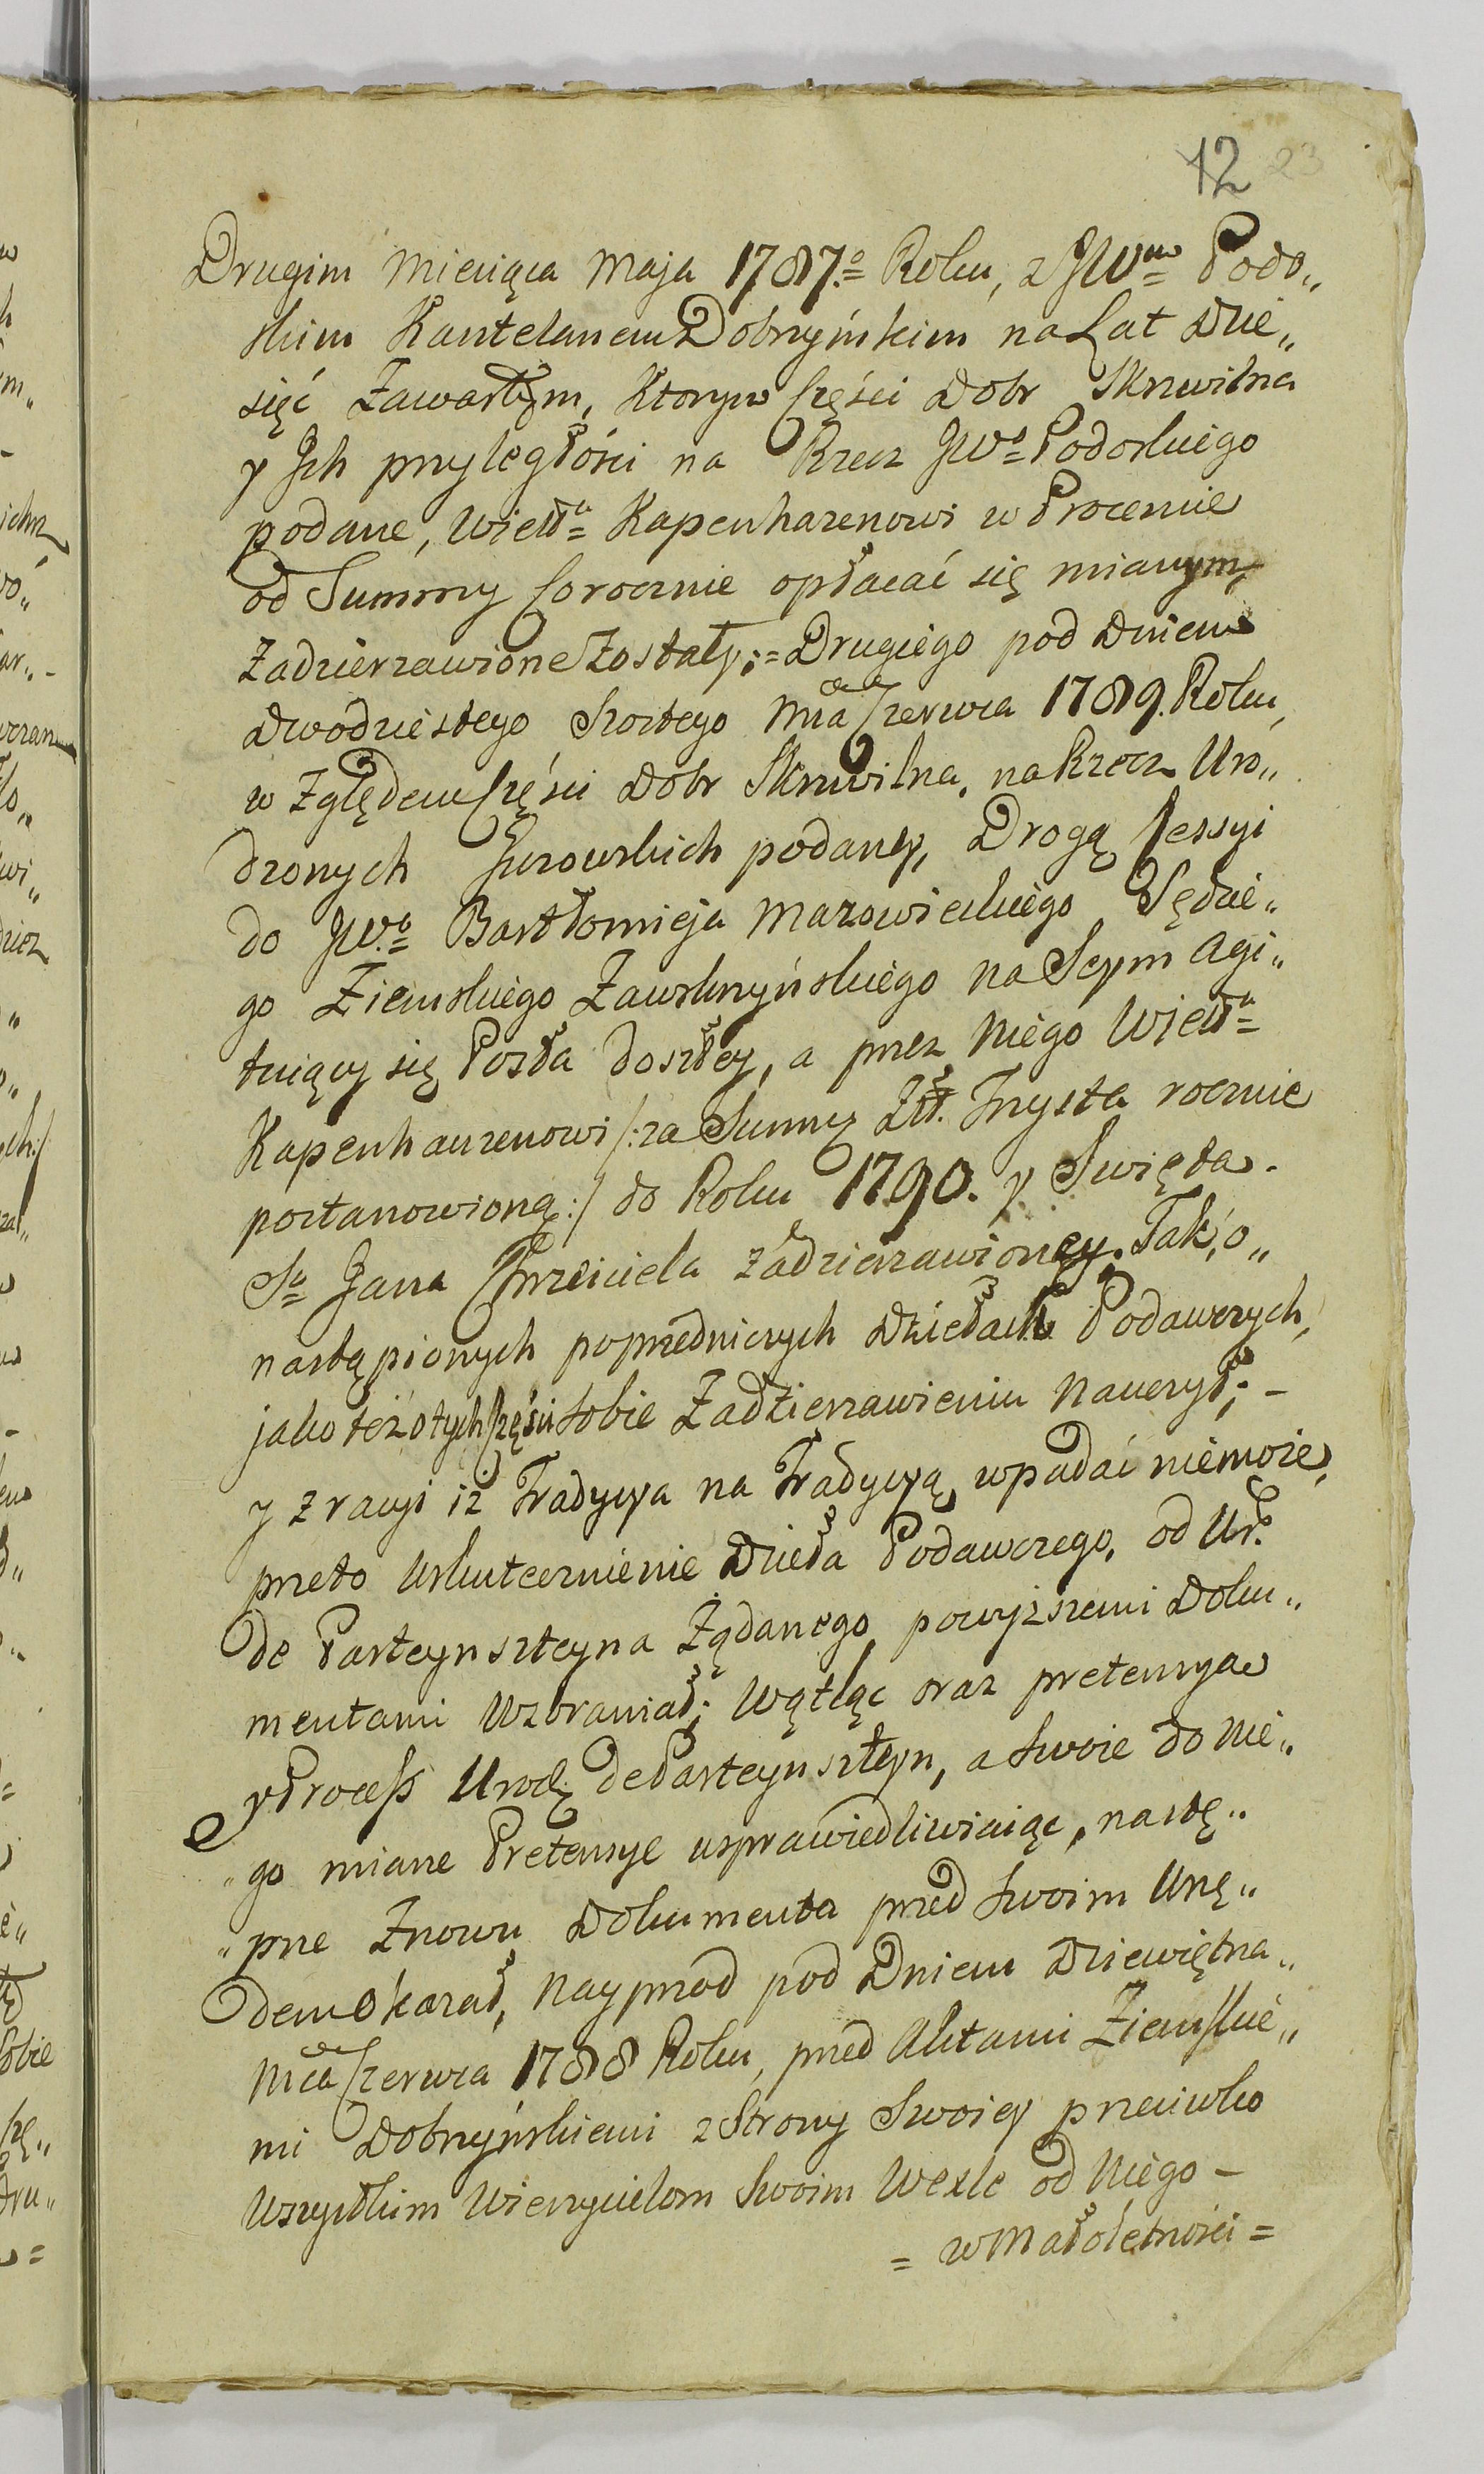 12 23
Drugim Miesiąca Maja 1787.o Roku, z JWm Podo„
skim Kasztelanem Dobrzyńskim na Lat Dzie„
sięć Zawartym, Ktorym Części Dobr Skrwilna
y Jch przyległości na Rzecz JWo Podoskiego
podane, Wielu Kapenhazenowi w Procencie
od Summy Corocznie opłacać się mianym,
Zadzierzawione zostały; = Drugiego pod Dniem
Dwódziestego Szostego Mca Czerwca 1789. Roku,
w Zględem Części Dobr Skrwilna, na Rzecz Uro„
dzonych podaney, Drogą Cessyi
do JWo Bartłomieja Mazowieckiego Sędzie„
go Ziemskiego Zawskrzyńskiego na Seym agi„
tuiący się Posła doszłey, a przez Niego Wielu
Kapenhauzenowi /: za Summę Zł. Trysta rocznie
postanowioną :/ do Roku 1790. y Swięta
So Jana Chrzciciela zadzierzawioney. Tak, o„
nastąpionych poprzedniczych Dziełach Podawczych,
jako też o tych Części sobie Zadzierzawieniu nauczył; -
y z racyi iż Tradycya na Tradycyą wpadać niemoże,
przeto Uskutecznienie Dzieła Podawczego, od Ur.
de Parteynszteyna Żądanego powyższemi Doku„
mentami Wzbraniał; Wątląc oraz pretensya
y Process Urodz. de Parteynszteyn, a swoie do Nie„
„go miane Pretensye usprawiedliwiaiąc, nastę„
„pne Znowu Dokumenta przed swoim Urzę„
dem Okazał, Nayprzod pod Dniem Dziewiętna„
Mca Czerwca 1788 Roku, przed Aktami Ziemskie„
mi Dobrzyńskiemi z Strony Swoiey przeciwko
Wszystkim Wierzycielom Swoim Wexle od Niego -
= w Małoletności =